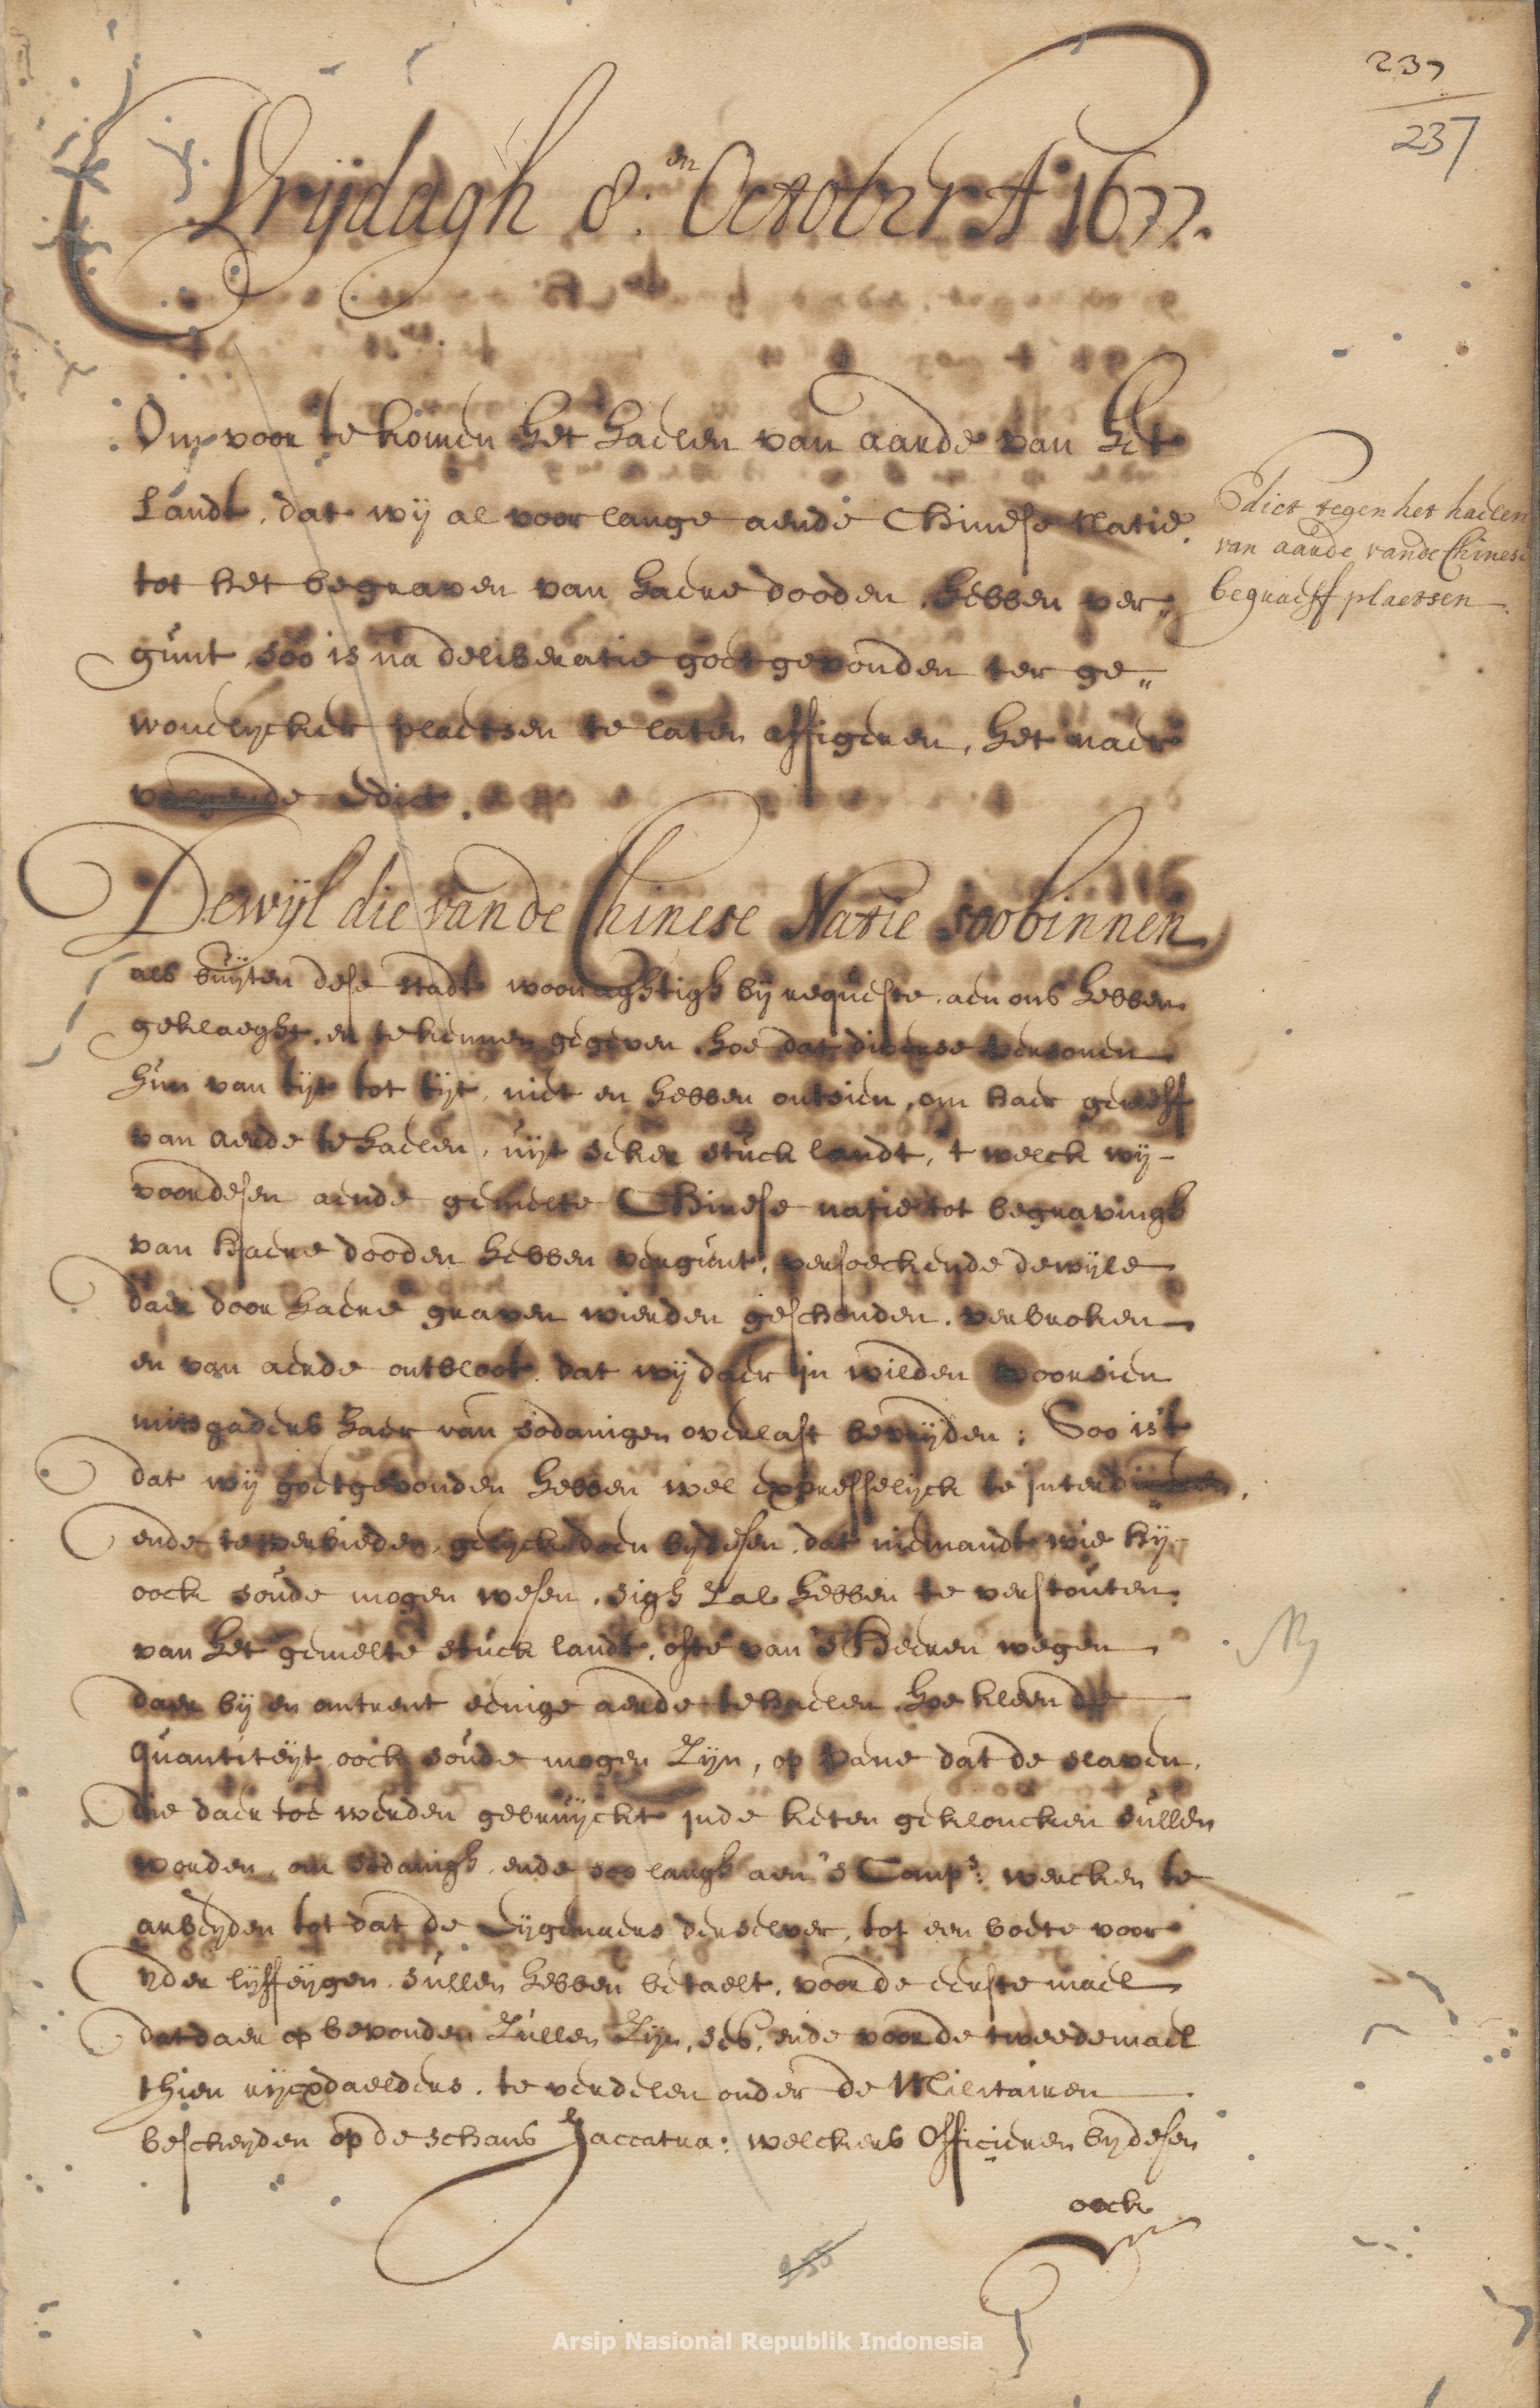 237
237
Vrijdagh 8.en October A.o 1677.
Om voor te komen het haelen van aarde van het
Landt, dat wij al voor lange aende Chinese Natie,
tot het begraven van haere dooden hebben ver„
gunt, soo is na deliberatie goet gevonden ter ge„
woonelycker plaetsen te laten affigeren, het naer
volgende Edict.
Edict tegen het haelen
van aarde vande Chinese
begraeff plaetsen
Dewijl die van de Chinese Natie soo binnen
als buijten dese stadt woonaghtigh bij requeste aen ons hebben
geklaeght, en te kennen gegeven hoe dat diverse persoonen
hun van tijt tot tijt, niet en hebben ontsien, om haer gerieff
van aerde te haelen, uijt seker stuck landt, t welck wij-
voordesen aende gemelte Chinese natie tot begravingh
van haere dooden hebben vergunt, versoeckende dewijle
daer door haere graven wierden geschonden, verbroken
en van aerde ontbloot, dat wij daer in wilden voorsien
mitsgaders haer van sodanigen overlast bevrijden; Soo is't
dat wij goetgevonden hebben wel expresselyck te interdiceren,
ende te verbieden, gelyck doen bij desen, dat niemandt wie hij
oock soude mogen wesen, sigh zal hebben te verstouten
van het gemelte stuck landt, ofte van 's Heeren wegen
daer bij en ontrent eenige aerde te haelen, hoe kleen de
quantiteijt oock soude mogen zijn, op pane dat de slaven,
die daer toe werden gebruijckt inde keten gekloncken sullen
worden, om sodanigh ende soo langh aen 's Comp.s wercken te
arbeijden tot dat de Eijgenaers derselver, tot een boete voor
ijder lijffeijgen sullen hebben betaelt, voor de eerste mael
dat daer op bevonden zullen zijn, ses, ende voor de tweedemael
thien rijcxdaelders, te verdelen onder de Militairen
bescheijden op de schans Jaccatra; welckers Officieren bij desen
oock
255
Arsip Nasional Republik Indonesia